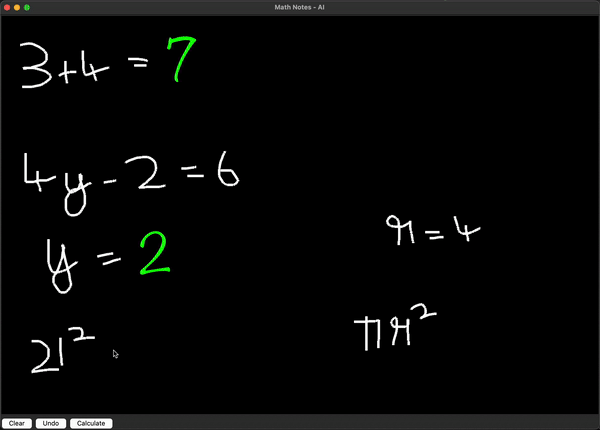 Math Notes - AI
3+4 = 7
4y - 2 = 6
y = 2
21²
r = 4
πr²
Clear Undo Calculate